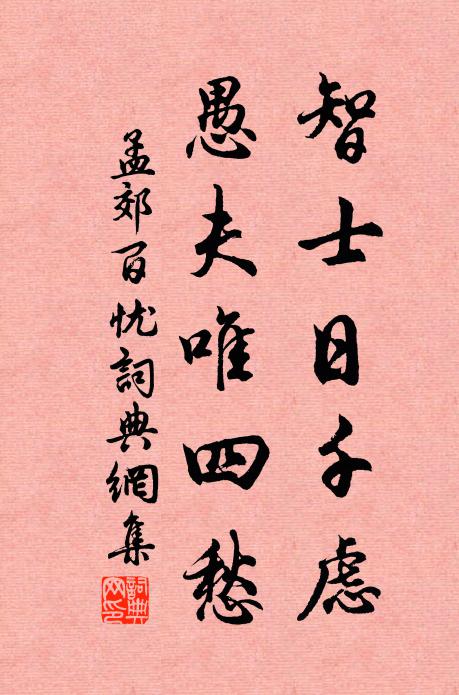 智士日千慮
愚夫唯四愁
孟郊百忧詞典網集
詞典網印